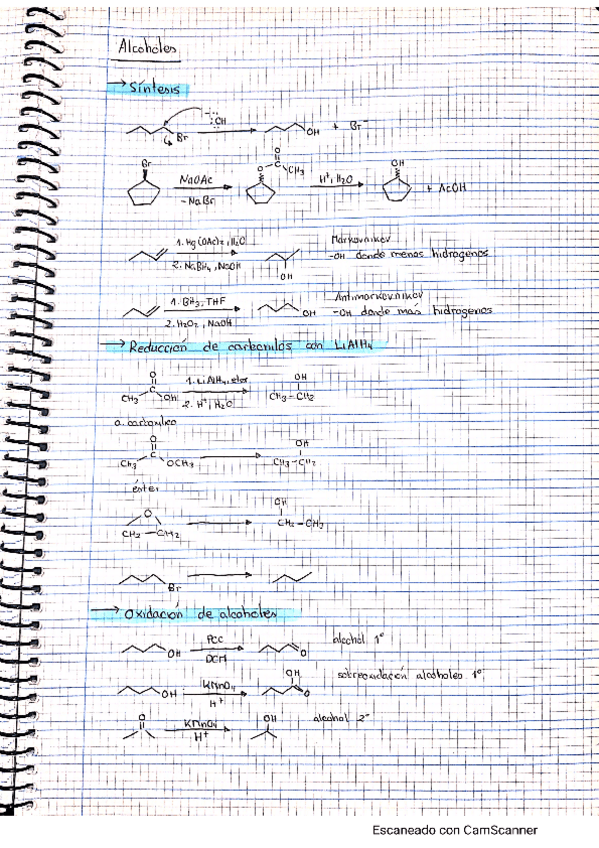 Alcoholes
→ Síntesis
:OH
Br → OH + Br⁻
Br NaOAc -NaBr O C O CH₃ H⁺, H₂O OH + AcOH
1. Hg(OAc)₂, H₂O Markovnikov
2. NaBH₄, NaOH OH -OH donde menos hidrogenos
1. BH₃, THF OH Antimarkovnikov
2. H₂O₂, NaOH -OH donde más hidrogenos
→ Reducción de carbonilos con LiAlH₄
O 1. LiAlH₄, eter OH
CH₃ C OH 2. H⁺, H₂O CH₃-CH₂
a. carboxílico
O OH
CH₃ C OCH₃ → CH₃-CH₂
éster
O OH
CH₂-CH₂ → CH₂-CH₃
Br →
→ Oxidación de alcoholes
OH PCC DCM O alcohol 1º
OH KMnO₄ H⁺ OH O sobreoxidación alcoholes 1º
O KMnO₄ H⁺ OH alcohol 2º
Escaneado con CamScanner